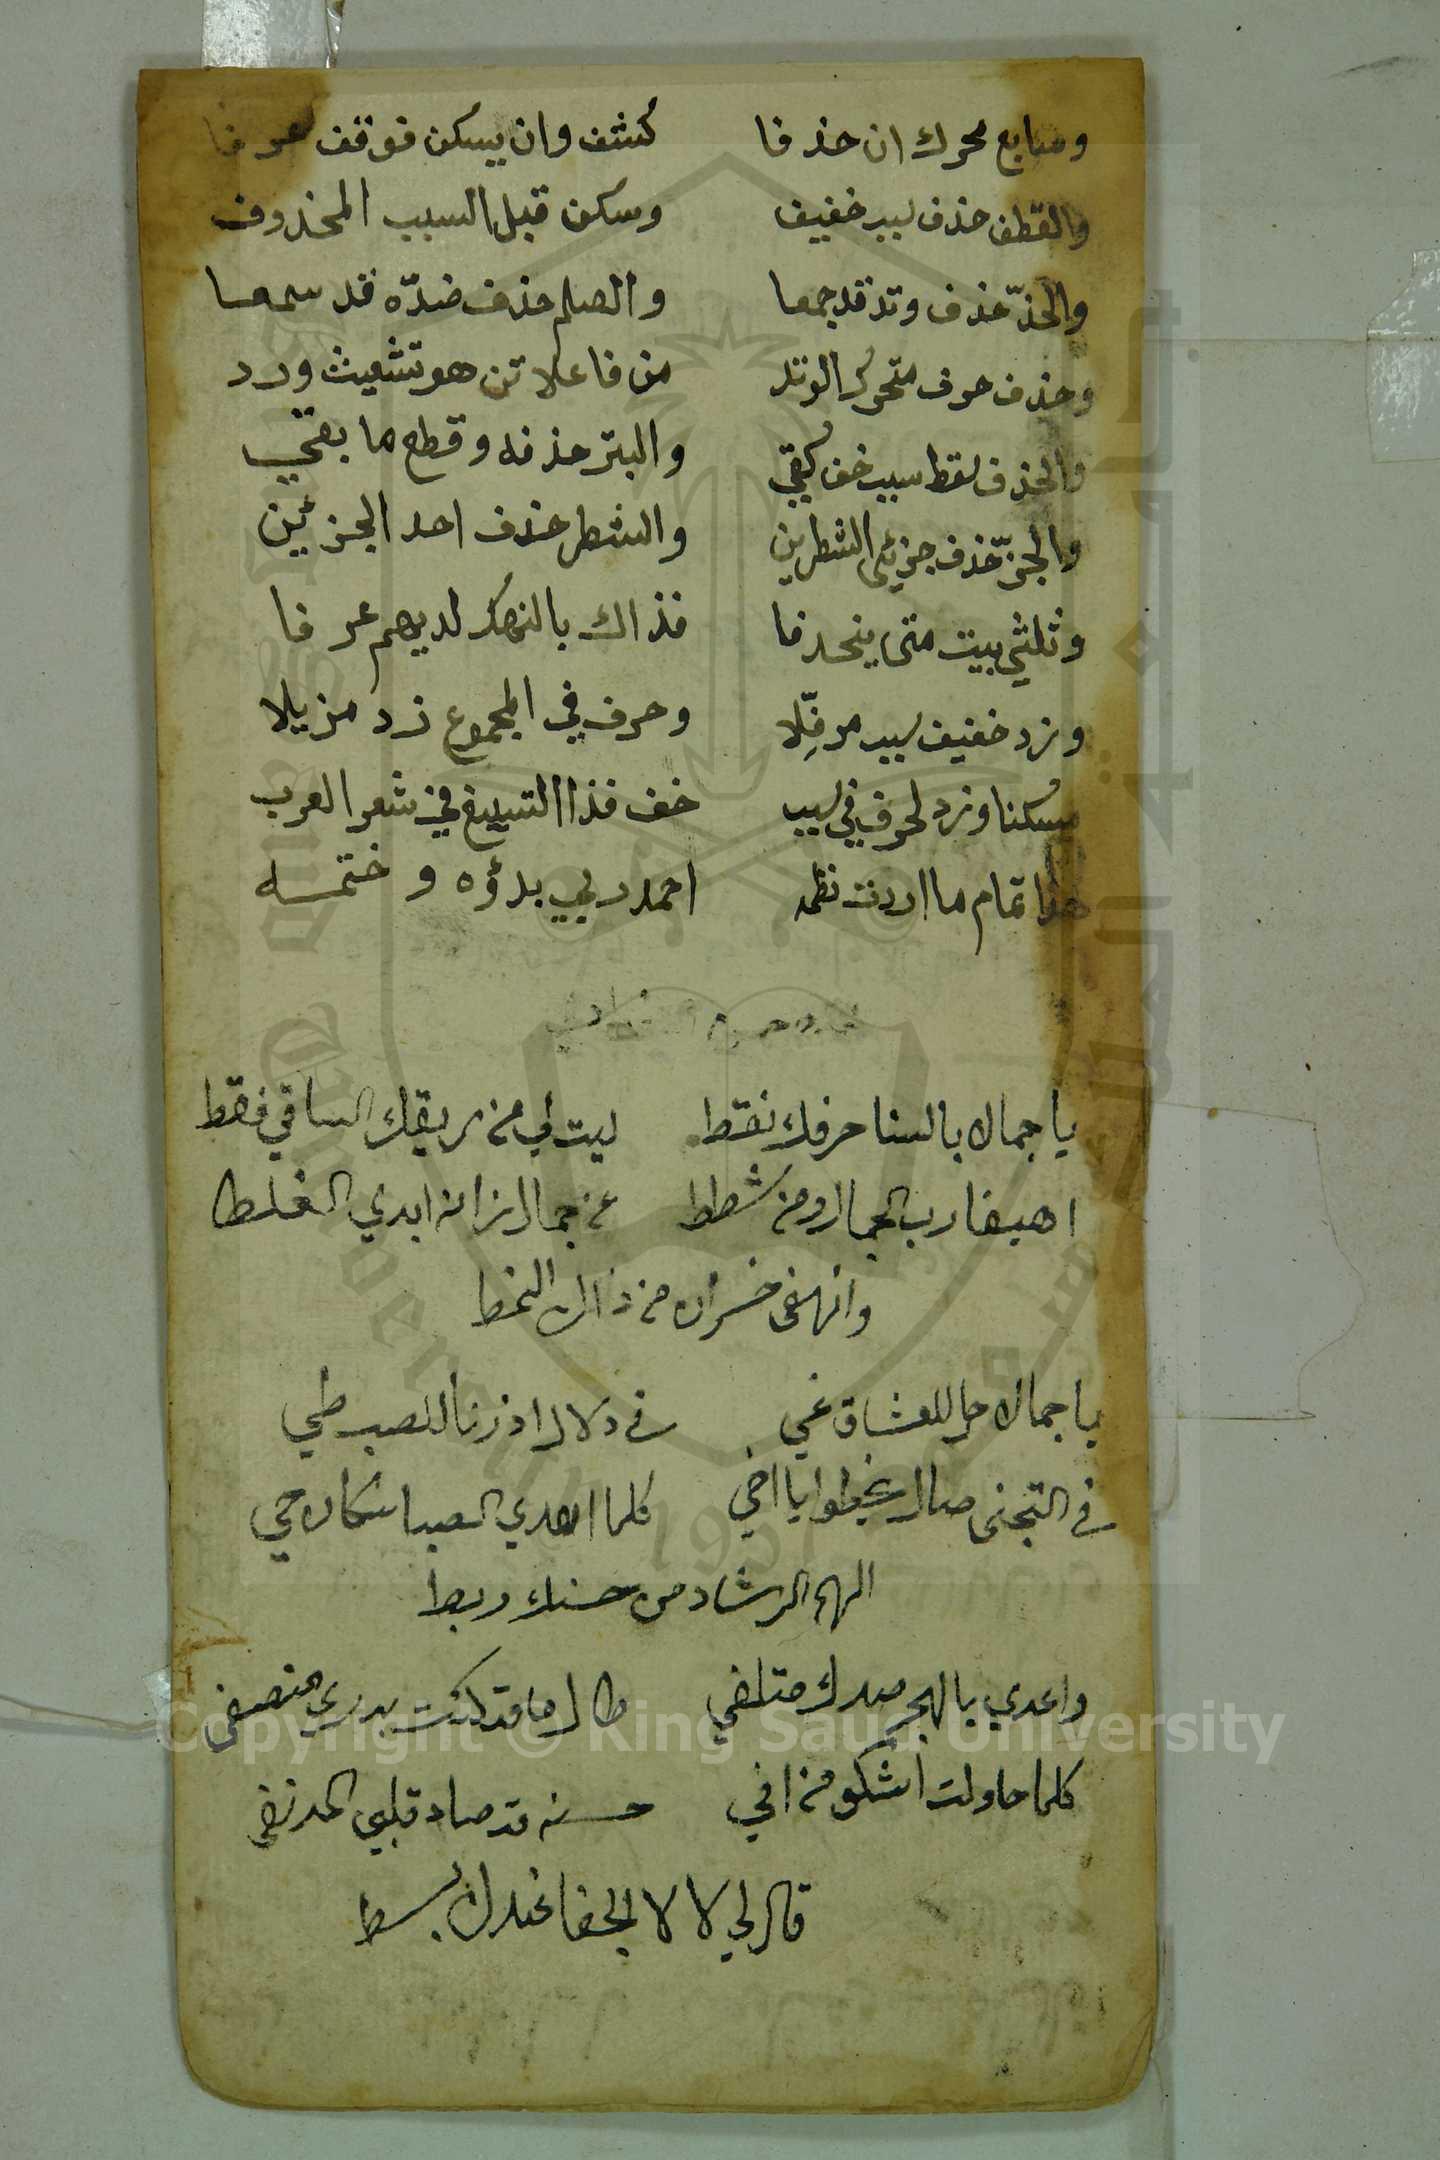 وسابع محرك ان حذفا كشف وان يسكن فوقف عرفا
والقطف حذف سبب خفيف وسكن قبل السبب المحذوف
والحذّ حذف وتد قد جمعا والصلم حذف ضدّه قد سمعا
وحذف حرف متحرك الوتد من فاعلاتن هو تشعيث ورد
والحذف لقط سبب خف كقي والبتر حذفه وقطع ما بقي
والجزّ حذف جزئي الشطرين والشطر حذف احد الجزئين
وثلثي بيت متى ينحذفا فذاك بالنهك لديهم عرفا
وزد خفيف سبب مرفِّلا وحرف في المجموع زد مزيلا
مسكنا وزد لحرف في سبب خف فذا التسبيغ في شعر العرب
هذا تمام ما اردت نظمه احمد ربي بدؤه وختمه
يا جمالا بالسنا حرفك نقط ليت لي من ريقك الساقي فقط
اهيفا رب الجمال ومن شطط عن جمال زانه ابدي الغلط
وانهض خسران من ذاك النمط
يا جمالا حل للعشاق غي في دلال اذ زنا للصب طي
في التجني صال يخطوا يا اخي كلما اهدي الصبا
الرشاد من حسنك ربط
واعدي بالهجر صدك متلفي طال ما قد كنت بدري منصفي
كلما حاولت اشكو من افي حسنه قد صاد قلبي المدنفي
قال لي لا لا الجفا عندك بسط
Copyright © King Saud University